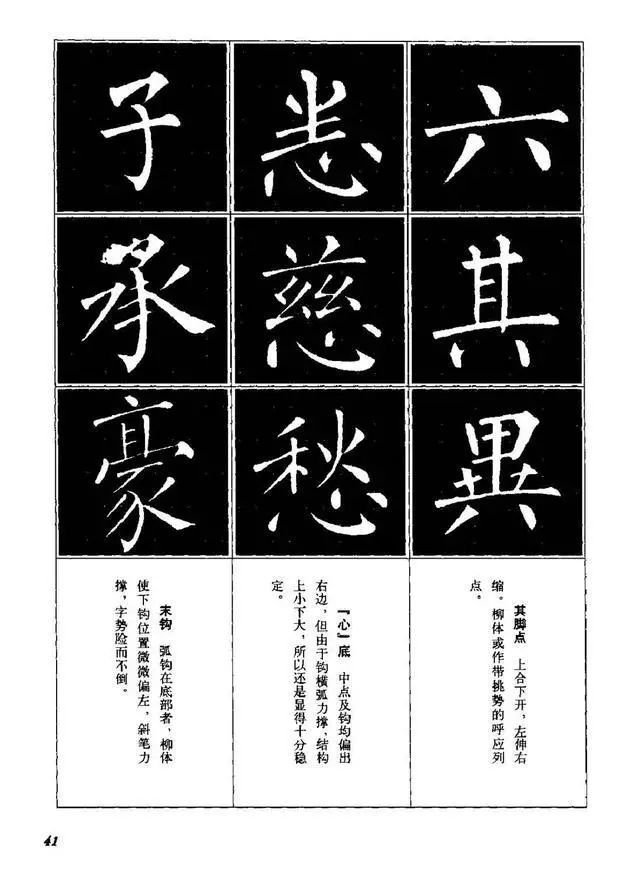 六
其
異
其脚点　上合下开，左伸右
缩。柳体或作带挑势的呼应列
点。
恙
慈
愁
『心』底　中点及钩均偏出
右边，但由于钩横弧力撑，结构
上小下大，所以还是显得十分稳
定。
子
承
豪
末钩　弧钩在底部者，柳体
使下钩位置微微偏左，斜笔力
撑，字势险而不倒。
41